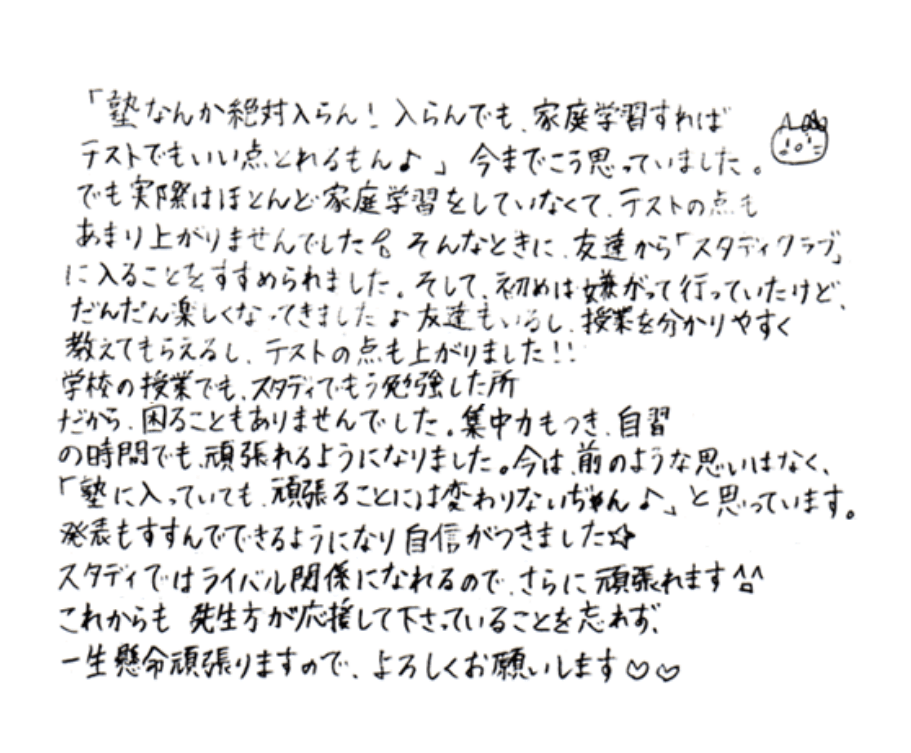 「塾なんか絶対入らん！入らんでも、家庭学習すれば
テストでもいい点とれるもん♪」今までこう思っていました。
でも実際はほとんど家庭学習をしていなくて、テストの点も
あまり上がりませんでした。そんなときに、友達から「スタディクラブ」
に入ることをすすめられました。そして、初めは嫌がって行っていたけど、
だんだん楽しくなってきました♪友達もいるし、授業を分かりやすく
教えてもらえるし、テストの点も上がりました!!
学校の授業でも、スタディでもう勉強した所
だから、困ることもありませんでした。集中力もつき、自習
の時間でも、頑張れるようになりました。今は、前のような思いはなく、
「塾に入っていても、頑張ることには変わりないぢゃん♪」と思っています。
発表もすすんでできるようになり自信がつきました☆
スタディではライバル関係になれるので、さらに頑張れます^△^
これからも 先生方が応援して下さっていることを忘れず、
一生懸命頑張りますので、よろしくお願いします♡♡